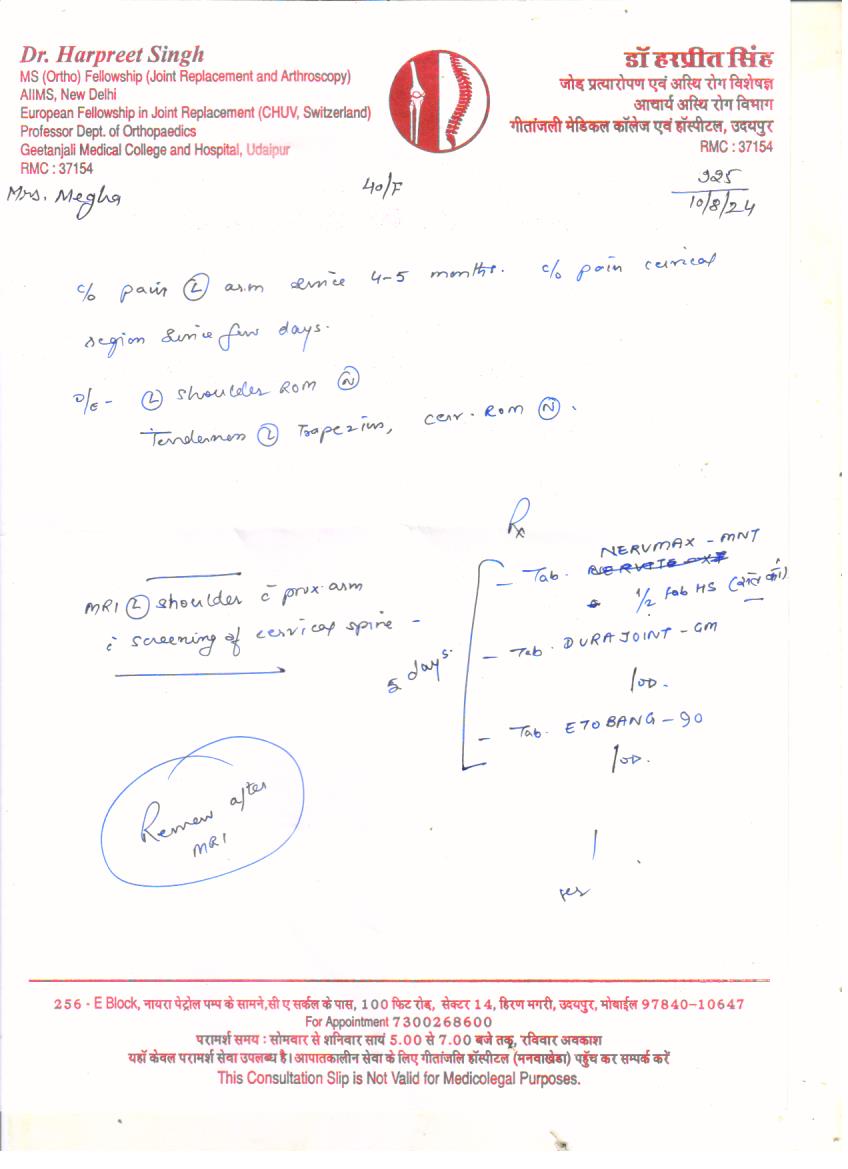 Dr. Harpreet Singh
MS (Ortho) Fellowship (Joint Replacement and Arthroscopy)
AIIMS, New Delhi
European Fellowship in Joint Replacement (CHUV, Switzerland)
Professor Dept. of Orthopaedics
Geetanjali Medical College and Hospital, Udaipur
RMC : 37154
डॉ हरप्रीत सिंह
जोड़ प्रत्यारोपण एवं अस्थि रोग विशेषज्ञ
आचार्य अस्थि रोग विभाग
गीतांजली मेडिकल कॉलेज एवं हॉस्पीटल, उदयपुर
RMC : 37154
Mrs. Megha
40/F
925
10/8/24
c/o pain Ⓛ arm since 4-5 months. c/o pain cervical
region since few days.
O/E - Ⓛ shoulder ROM Ⓝ
Tenderness Ⓛ Trapezius, cerv. ROM Ⓝ.
MRI Ⓛ shoulder c̄ prox. arm
c̄ screening of cervical spine -
Review after
MRI
Rx
NERVMAX - MNT
- Tab.
1/2 tab HS (रात को)
- Tab. DURAJOINT - GM
1 OD.
- Tab. ETOBANG - 90
1 OD.
5 days.
256 - E Block, नायरा पेट्रोल पम्प के सामने,सी ए सर्कल के पास, 100 फिट रोड़, सेक्टर 14, हिरण मगरी, उदयपुर, मोबाईल 97840-10647
For Appointment 7300268600
परामर्श समय : सोमवार से शनिवार सायं 5.00 से 7.00 बजे तक, रविवार अवकाश
यहाँ केवल परामर्श सेवा उपलब्ध है। आपातकालीन सेवा के लिए गीतांजलि हॉस्पीटल (मनवाखेडा) पहुँच कर सम्पर्क करें
This Consultation Slip is Not Valid for Medicolegal Purposes.